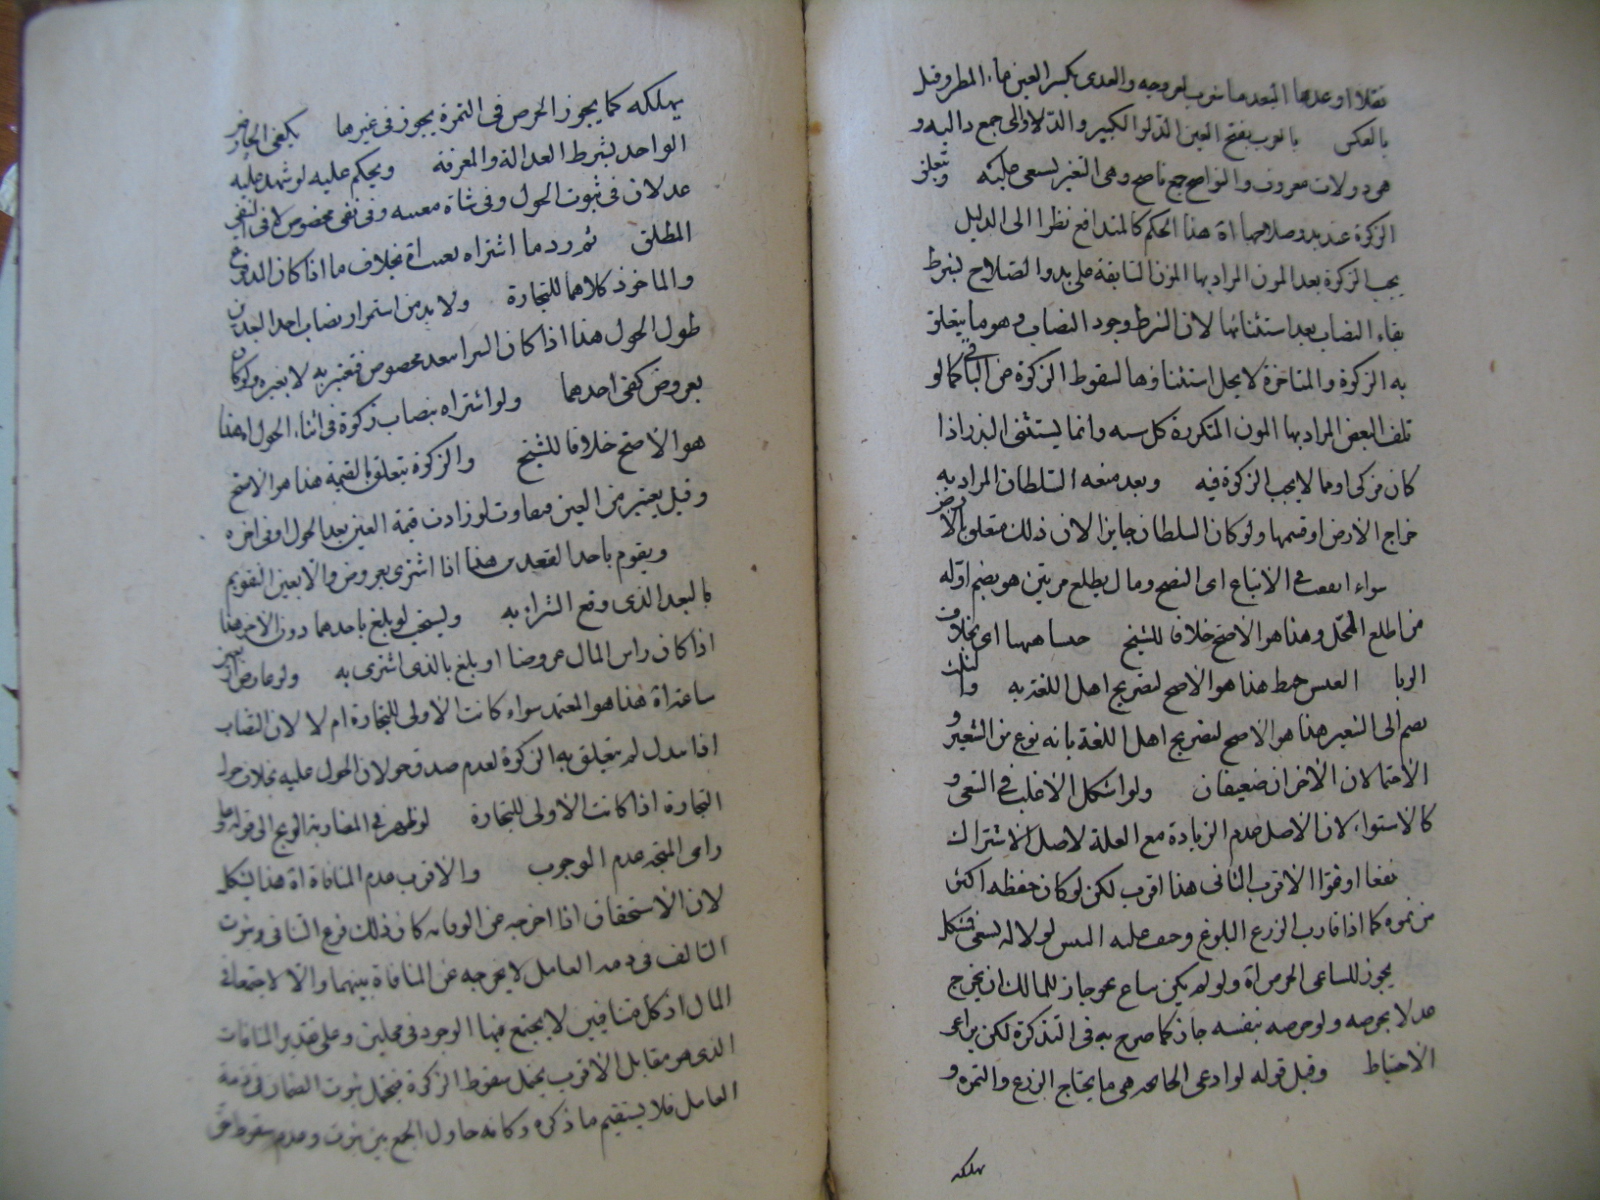 فعلا او عدها البعد ما شرب بعروجه والعدى بكسر العين ماء المطر وقيل
بالعكس بالغرب بفتح العين الدلو الكبير والدلاء والى جمع دالية و
هى دولات معروف والنواضح جمع ناضح وهى البعير يسقى عليه ويتعلق
الزكوة عند بدو صلاحها اه هذا الحكم كالمتدافع نظرا الى الدليل
يجب الزكوة بعد المون المراد بها المون السابقة على بدو الصلاح بشرط
بقاء النصاب بعد استثنائها لان الشرط وجود النصاب وهو ما يتعلق
به الزكوة والمتاخرة لا يحل استثناؤها لسقوط الزكوة من الباقى كما لو
تلف البعض المراد بها المون المتكررة كل سنه وانما يستثنى البذر اذا
كان مزكى او مما لا يجب الزكوة فيه وبعد منعه السلطان المراد به
خراج الارض او قسمها ولو كان السلطان جايرا لان ذلك متعلق بالارض
سواء اتفقت فى الايناع اى النضج ومال يطلع مرتين هو بضم اوله
من اطلع النخل وهذا هو الاصح خلافا للشيخ حسا ههنا اى بخلاف
الربا العلس حنطة هذا هو الاصح لتصريح اهل اللغة به والسلت
يضم الى الشعير هذا هو الاصح لتصريح اهل اللغة بانه نوع من الشعير و
الاحتمالان الاخران ضعيفان ولو اشكل الاغلب فى السقى و
كالاستواء لان الاصل عدم الزيادة مع العلة لاصل الاشتراك
نفعا او نموا الاقرب الثانى هذا اقرب لكن لو كان حفظه اكثر
من نموه كما اذا قارب الزرع البلوغ وخيف عليه اليبس لولا له يسقى فمشكل
يجوز للساعى الخرص اه ولو لم يكن ساع نحو جاز للمالك ان يخرج
عدلا يخرصه ولو خرصه بنفسه جاز كما صرح به فى التذكرة لكن يراعى
الاحتياط وقبل قوله لو ادعى الجائحه هى ما يجتاح الزرع والثمره و
يهلكه
يهلكه كما يجوز الخرص فى الثمرة يجوز فى غيرها يكفى الخارص
الواحد بشرط العدالة والمعرفة ويحكم عليه لو شهد عليه
عدلان فى ثبوت الحول وفى شاة معينه وفى نفى مخصوص لا فى النفى
المطلق ثم رد ما اشتراه بعيب اه بخلاف ما اذا كان المدفوع
والماخوذ كلاهما للتجارة ولا بد من استمرار نصاب احد النقدين
طول الحول هذا اذا كان الشرا بنقد مخصوص فيعتبر به لا بغيره ولو كان
بعروض كفى احدهما ولو اشتراه بنصاب زكوة فى اثناء الحول اه هذا
هو الاصح خلافا للشيخ والزكوة يتعلق بالقيمة هذا هو الاصح
وقيل يعتبر من العين فيتفاوت لو زادت قيمة العين بعد الحول او فى اخره
ويقوم باحد النقدين هذا اذا اشترى بعروض والا تعين التقويم
بالنقد الذى وقع الشراء به ويستحب لو بلغ باحدهما دون الاخر هذا
اذا كان راس المال عروضا او بلغ بالذى اشترى به ولو عارض اربعين
سائمة اه هذا هو المعتمد سواء كانت الاولى للتجارة ام لا لان النصاب
اذا تبدل لم يتعلق به الزكوة لعدم صدق حولان الحول عليه بخلاف حول
التجارة اذا كانت الاولى للتجارة لو ظهر فى المضاربة الربح الى قوله على
راى المتجه عدم الوجوب والاقرب عدم المنافاة اه هذا يشكل
لان الاستحقاق اذا اخرجه عن الوقايه كان ذلك فرع التنافى وثبوت
التالف فى ذمه العامل لا يخرجه عن المنافاة بينهما والا لاجتمعا فى
المال اذ كل متنافيين لا يجتمع فيهما الوجود فى محلين وعلى تقدير المنافات
الذى هو مقابل الاقرب يحتمل سقوط الزكوة فيحتمل ثبوت الضمان فى ذمة
العامل فلا يستقيم ما ذكره وكانه حاول الجمع بين ثبوت وعدم سقوط حق